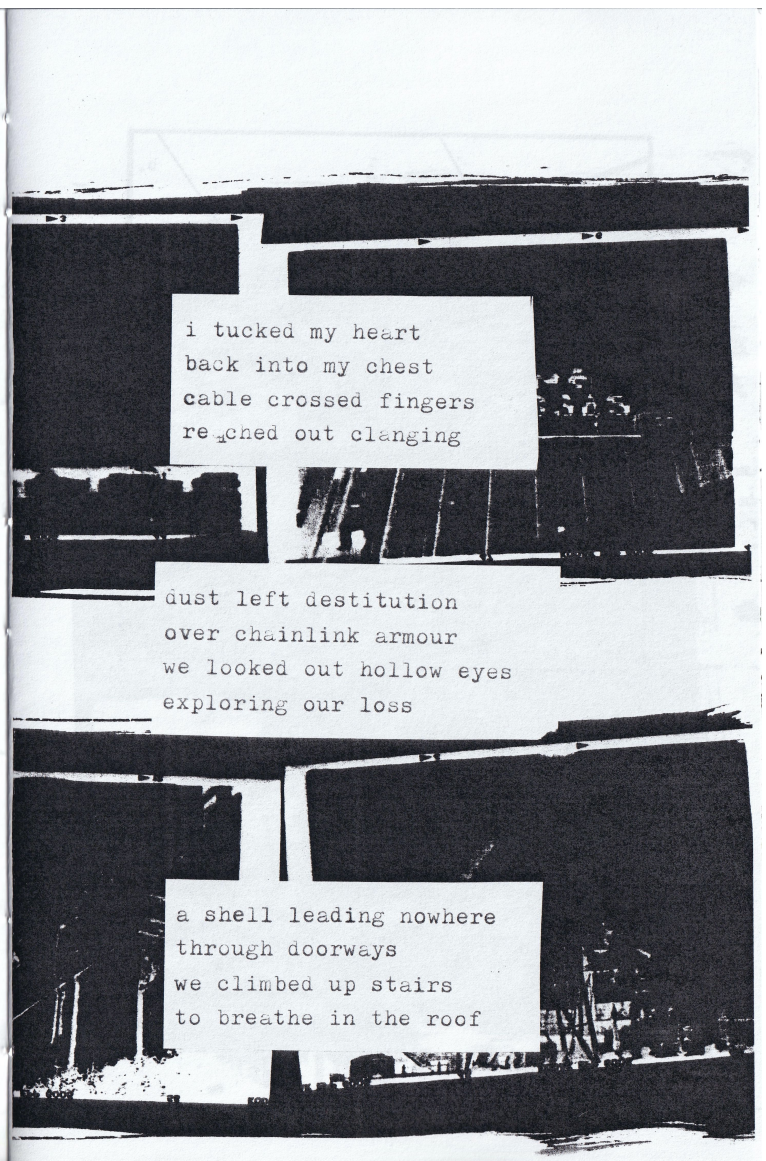 i tucked my heart
back into my chest
cable crossed fingers
reached out clanging
dust left destitution
over chainlink armour
we looked out hollow eyes
exploring our loss
a shell leading nowhere
through doorways
we climbed up stairs
to breathe in the roof